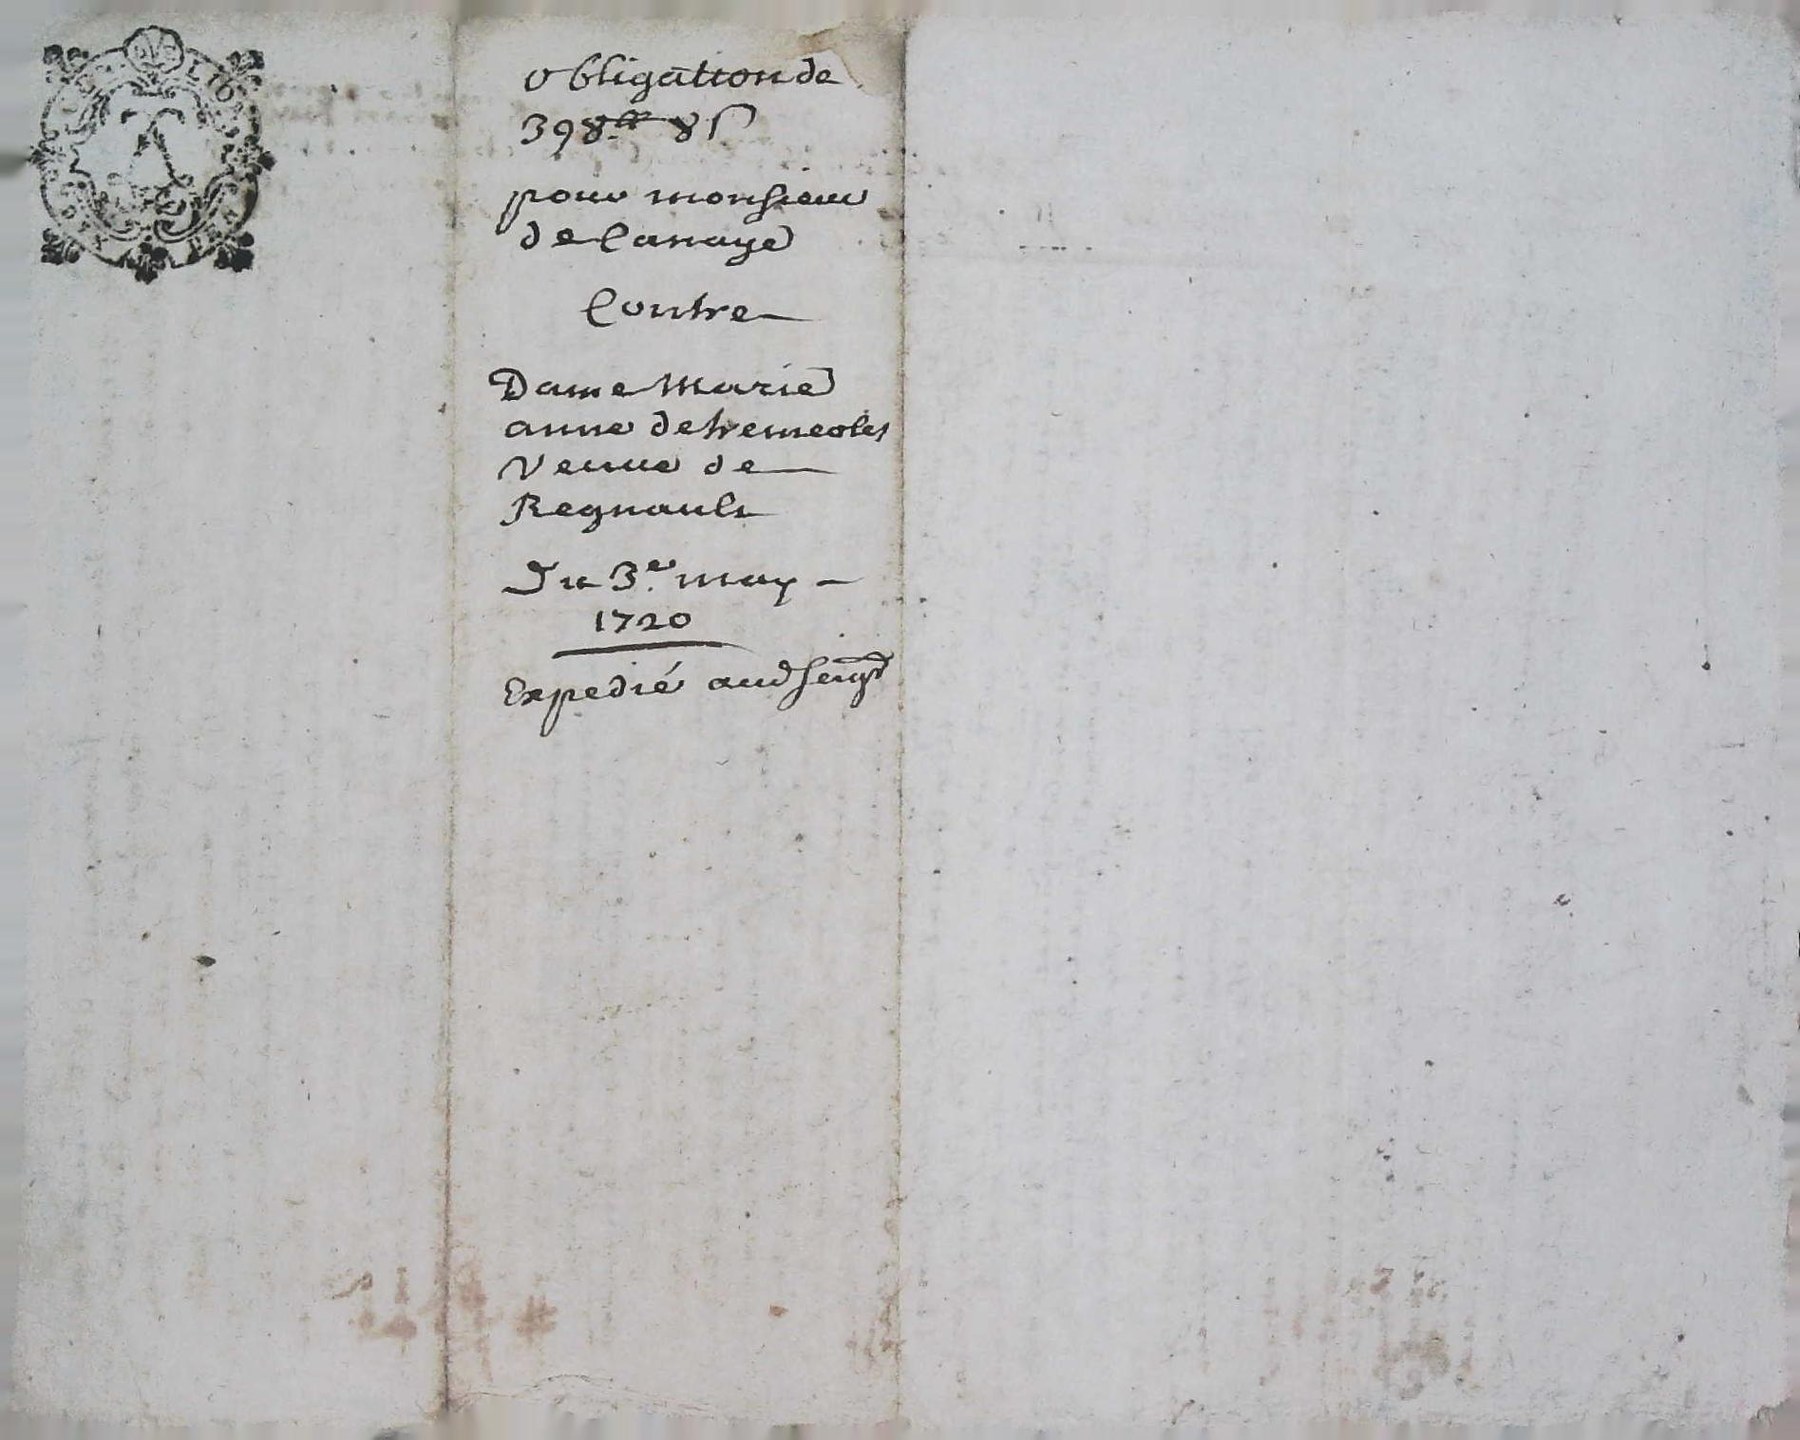 obligation de
398.ᵗᵗ 8 s
pour monsieur
de Canaye
Contre
Dame Marie
anne de tremeoles
Veuue de
Regnault
Du 3.ᵉ may
1720
Expedié aud seigʳ